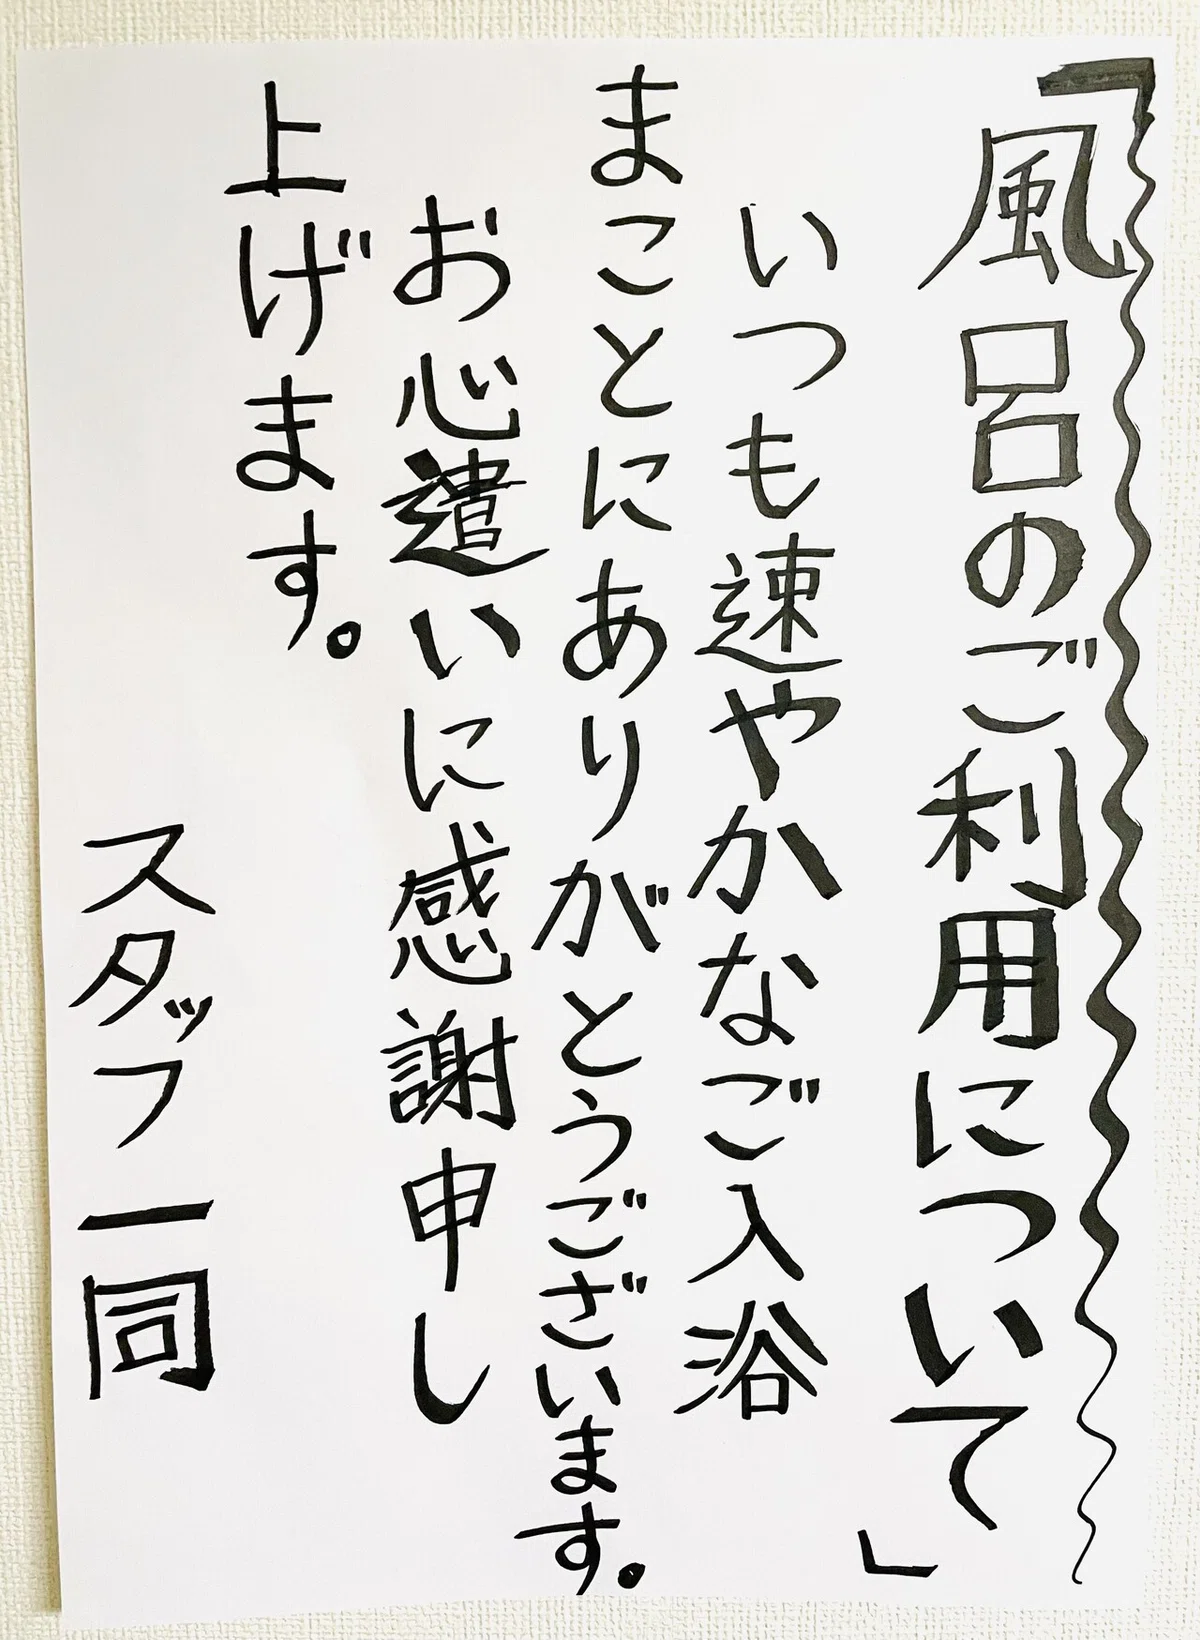 「風呂のご利用について」
いつも速やかなご入浴
まことにありがとうございます。
お心遣いに感謝申し
上げます。
スタッフ一同